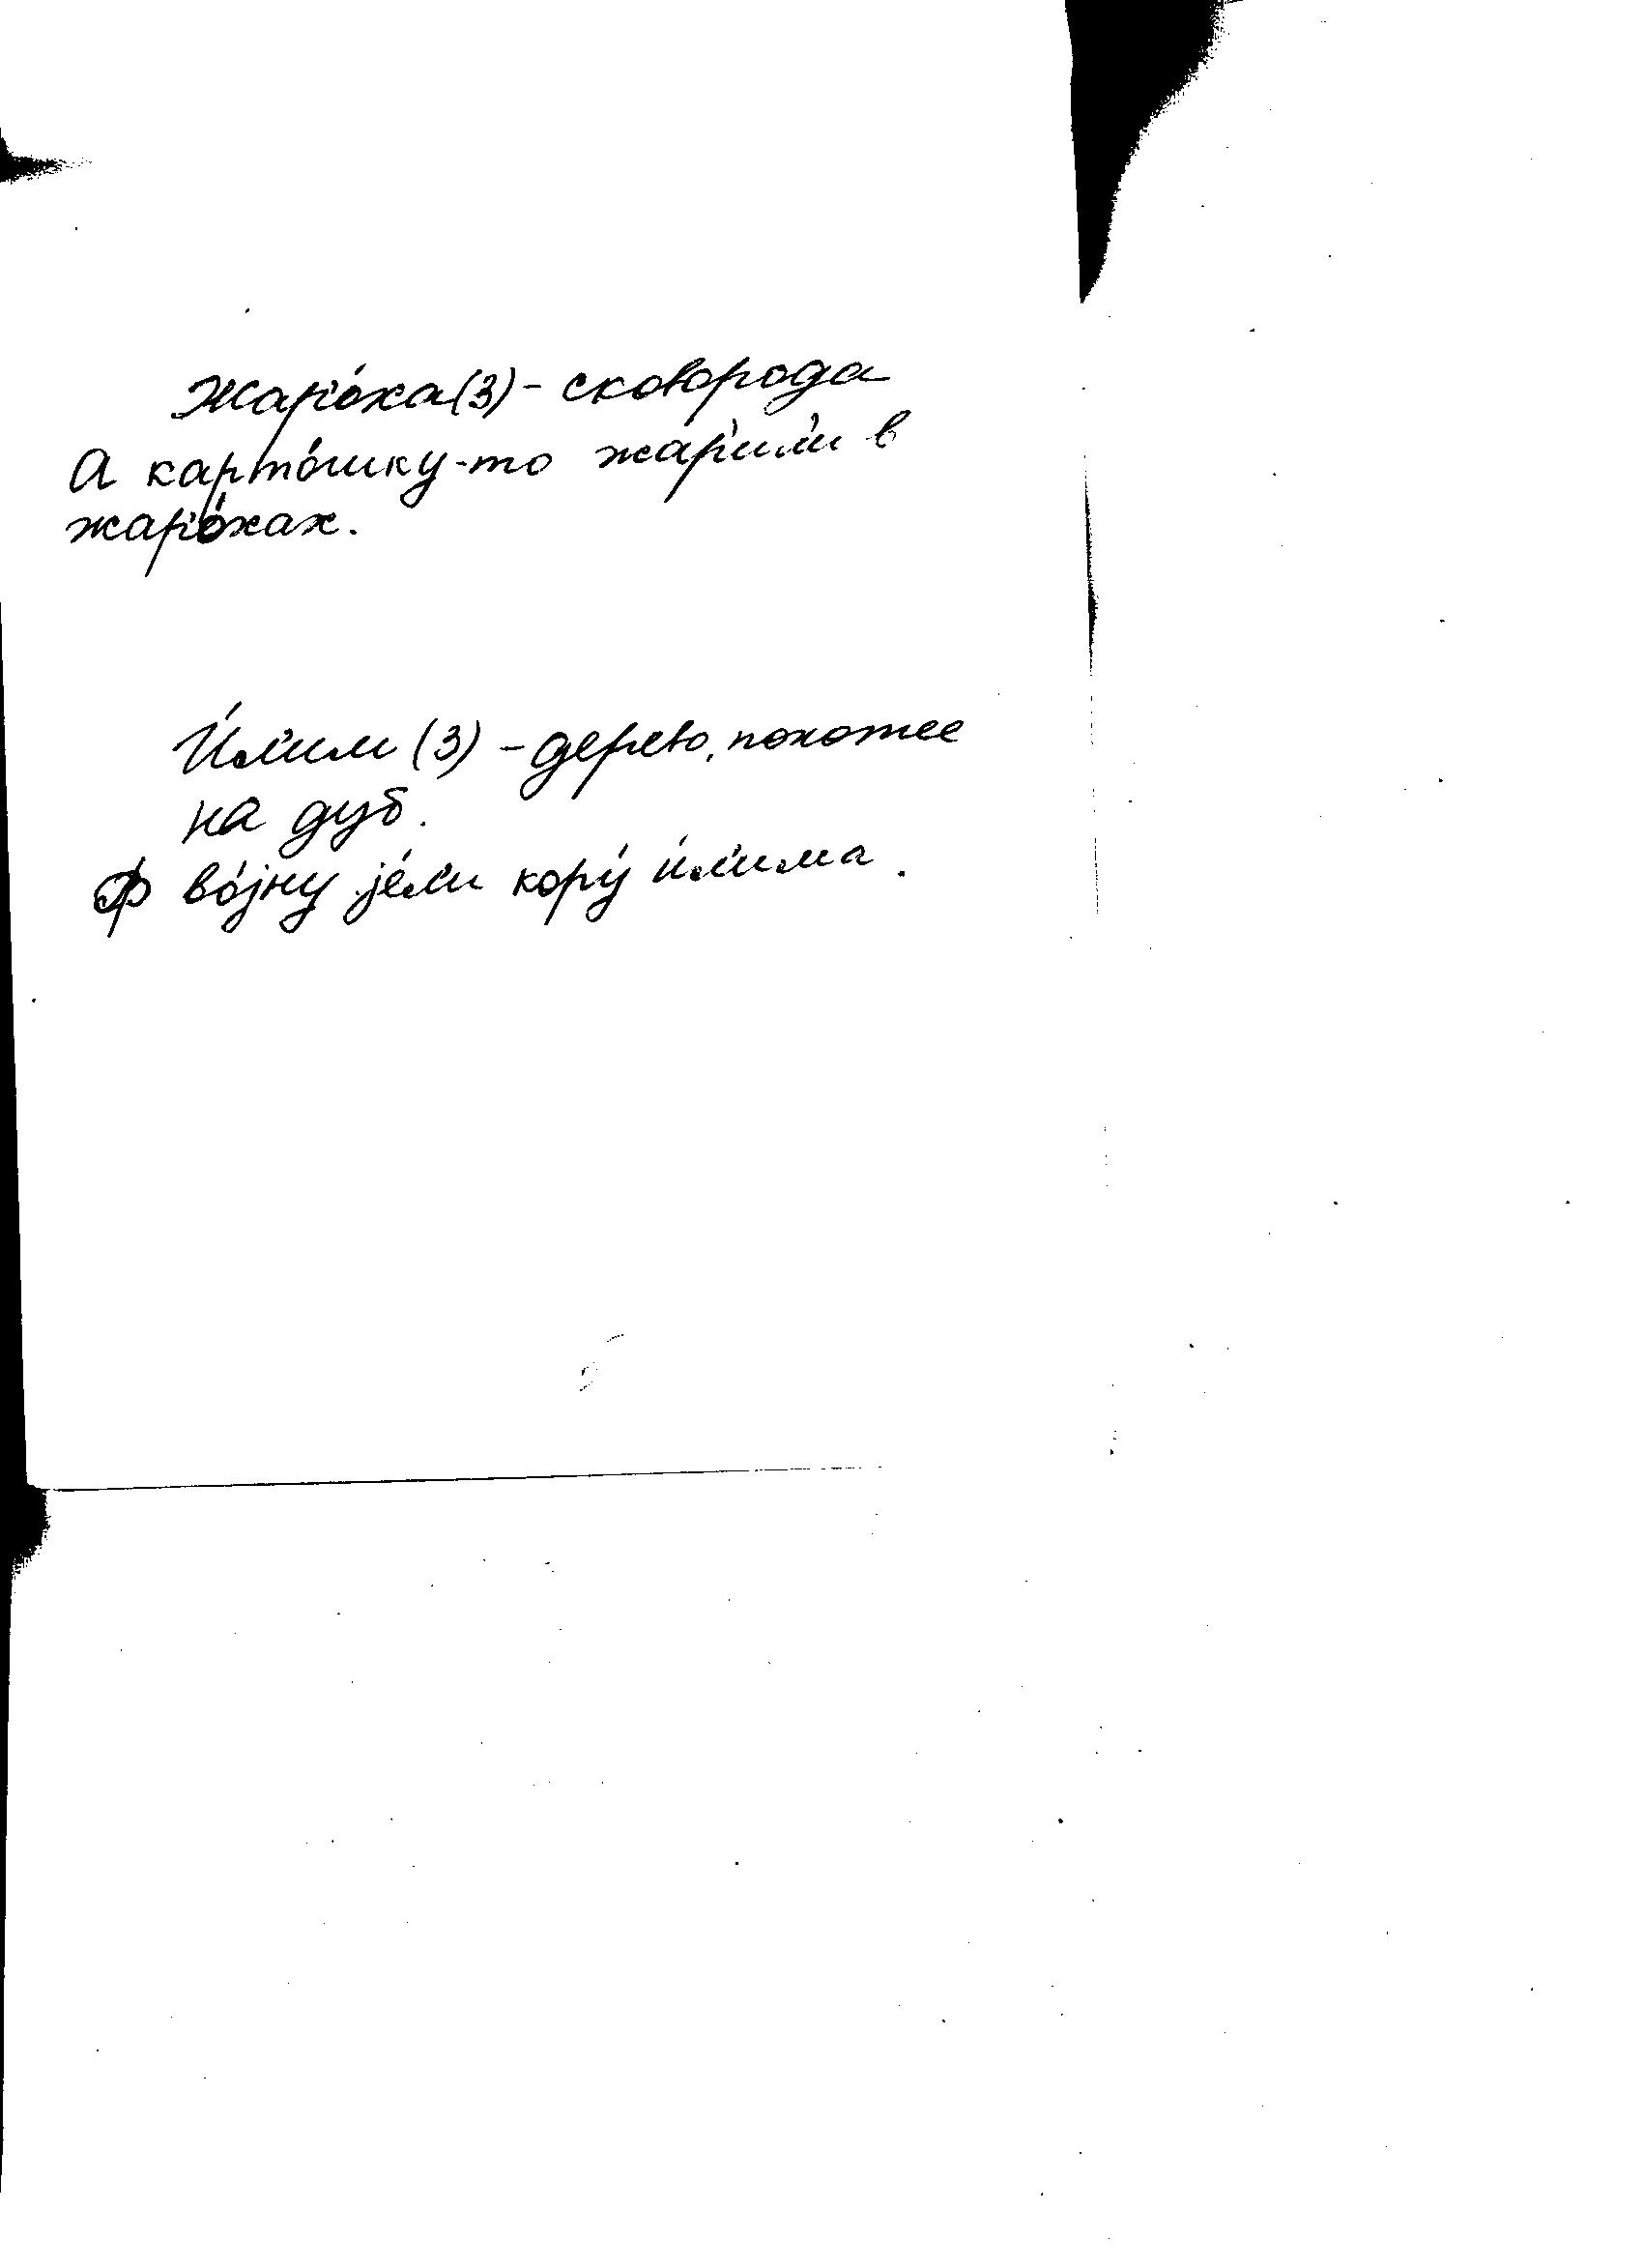 Жар'о́ха (3) - сковорода
А карто́шку-то жа́р'ил'и в
жар'о́хах.
И́л'им (3) - дерево, похожее
на дуб.
Ф во́jну jе́л'и кору́ и́л'има.